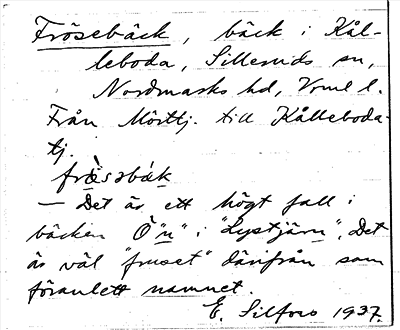 Frösebäck, bäck i Kål-
leboda, Silleruds sn,
Nordmarks hd, Vrml l.
Från Mörttj. till Kålleboda-
tj.
frö̀səbák
— Det är ett högt fall i
bäcken "Ön" i "Lystjärn". Det
är väl "fruset" därifrån som
föranlett namnet.
E. Silfors 1937.